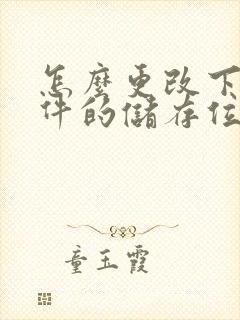 怎麼更改下
件的儲存位
童玉霞